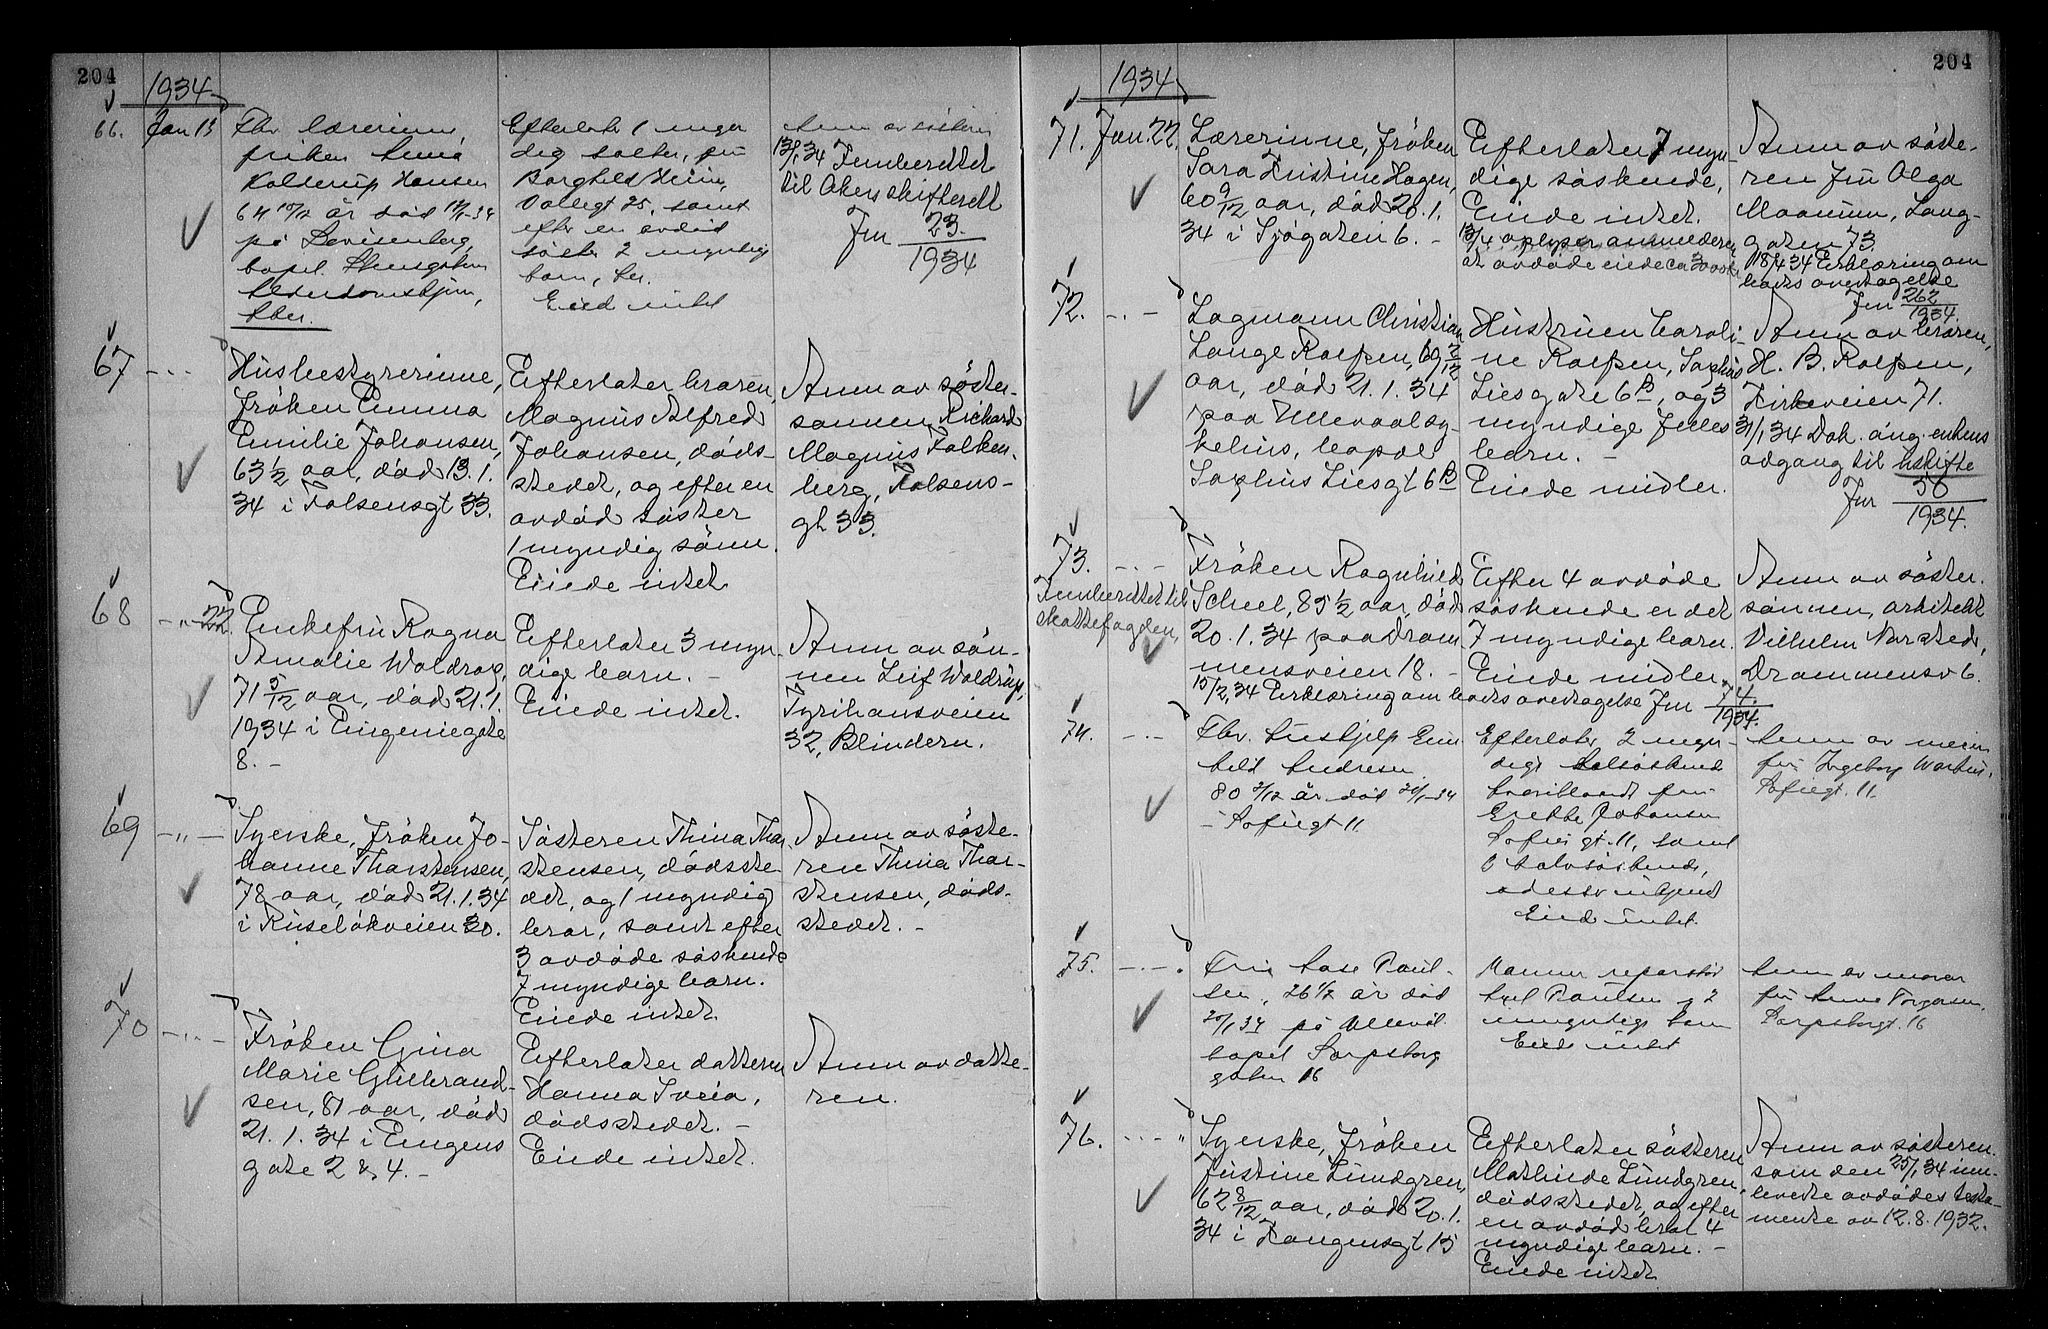 204
1934
66. Jan 13
Fhv. lærerinne,
frøken Anna
Kolderup Hansen
64 10/12 år død 12/1-34
på Lovisenberg,
bopel Stensgaten
Alderdomshjem,
Aker.
Efterlater 1 myn-
dig søster, fru
Borghild Heim,
Vallegt 25, samt
efter en avdød
søster 2 myndige
barn,
Eied intet
Anm av søsteren
13/1 34 Fremberettet
til Aker skifterett
Jnr 23
1934
67 - " -
Husbestyrerinne,
frøken Emma
Emilie Johansen,
63 1/2 aar, død 13.1.
34 i Falsensgt 33.
Efterlater broren,
Magnus Alfred
Johansen, døds-
stedet, og efter en
avdød søster
1 myndig sønn.
Eiede intet
Anm av søster-
sønnen Richard
Magnus Falken-
berg, Falsens-
gt 33.
68 - " - 22.
Enkefru Ragna
Amalie Waldrop,
71 5/12 aar, død 21.1.
1934 i Eugeniegate
8. -
Efterlater 3 myn-
dige barn. -
Eiede intet.
Anm av søn-
nen Leif Waldrup,
Tyrihansveien
32, Blindern.
69 - " -
Syerske, frøken Jo-
hanne Thorstensen,
78 aar, død 21.1.34
i Ruseløkveien 30.
Søsteren Thina Thor-
stensen, dødsste-
det, og 1 myndig
bror, samt efter
3 avdøde søskende
7 myndige barn.
Eiede intet
Anm av søste-
ren Thina Thor-
stensen, døds-
stedet. -
70 - " -
Frøken Gina
Marie Gulbrand-
sen, 81 aar, død
21.1.34 i Eugens
gate 2 & 4. -
Efterlater datteren
Hanna Sveia,
dødsstedet. -
Eiede intet.
Anm av datte-
ren.
204
1934
71. Jan. 22.
Lærerinne, frøken
Sara Kristine Hagen,
60 9/12 aar, død 20.1.
34 i Sjøgaten 6. -
Efterlater 7 myn-
dige søskende,
Eiede intet.
13/4 oplyser anmelderen
at avdøde eiede ca
Anm av søste-
ren fru Olga
Moanum, Lang-
gaten 73
18/4 34 Erklæring om
boets overtagelse
Jnr 262
1934.
72. - " -
Lagmann Christian
Lange Rolfsen, 69 2/12
aar, død 21.1.34
paa Ullevaal sy-
kehus, bopæl
Sophus Liesgt 6B
Hustruen Caroli-
ne Rolfsen, Sophus
Liesgate 6B, og 3
myndige felles
barn. -
Eiede midler.
Anm av broren,
H. B. Rolfsen,
Kirkeveien 71.
31/1 34 Dok. ang. enkens
adgang til uskifte
Jnr 58
1934.
73. - " -
Fremberettet til
skattefogden,
Frøken Ragnhild
Scheel, 85 1/2 aar, død
20.1.34 paa Dram-
mensveien 18. -
Efter 4 avdøde
søskende er det
7 myndige barn.
Eiede midler.
Anm av søster-
sønnen, arkitekt
Vilhelm Narsted,
Drammensv 6.
15/2 34 Erklæring om boets overtagelse Jnr 74.
1934.
74. - " -
Fhv. hushjelp
Andresen
80 2/12 år død 20/1-34
- Sofiegt 11
Efterlater 2 myn-
dige helsøskende
hvoriblandt fru
Johansen
Sofiesgt. 11, samt
halvsøskende,
adesse ukjent
Eied intet.
Anm av niesen
fru Ingeborg
Sofiegt. 11.
75. - " -
Fru Aase Paul-
sen, 26 1/2 år død
20/1 34 på Ullevål
bopel Sarpsborg
gaten 16
Mannen reparatør
Paulsen og 2
umyndige barn
Eied intet
Anm av moren
fru Anna Torgersen,
Sarpsborggt. 16
76. - " -
Syerske, frøken
Justine Lundgren,
62 8/12 aar, død 20.1.
34 i Langensgt 15
Efterlater søsteren
Mathilde Lundgren,
dødsstedet, og efter
en avdød bror 4
myndige barn. -
Eiede intet
Anm av søsteren
som den 25/1 34 inn-
leverte avdødes testa-
mente av 12.8.1932.